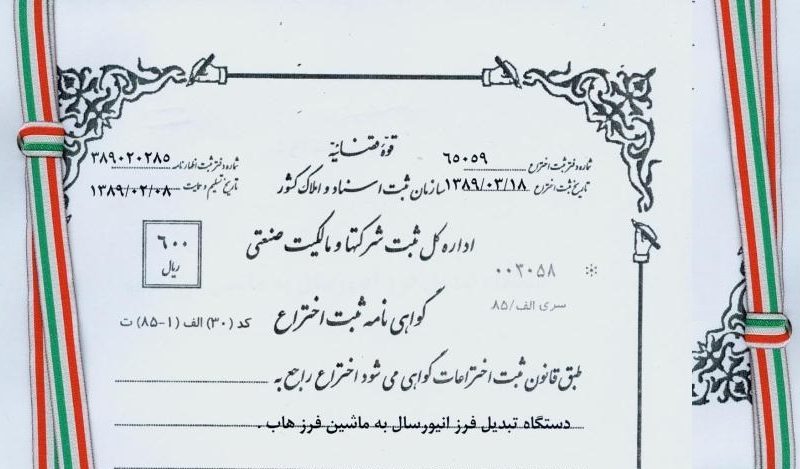 قوهٔ قضائیه
شماره دفتر ثبت اختراع ۶۵۰۵۹
شماره دفتر ثبت اظهارنامه ۳۸۹۰۲۰۲۸۵
تاریخ ثبت اختراع ۱۳۸۹/۰۳/۱۸
سازمان ثبت اسناد و املاک کشور
تاریخ تسلیم و حمایت ۱۳۸۹/۰۲/۰۸
اداره کل ثبت شرکتها و مالکیت صنعتی
۶۰۰
ریال
۰۰۳۰۵۸
سری الف/۸۵
گواهی نامه ثبت اختراع
کد (۳۰) الف (۱-۸۵) ت
طبق قانون ثبت اختراعات گواهی می شود اختراع راجع به
دستگاه تبدیل فرز انیورسال به ماشین فرز هاب .